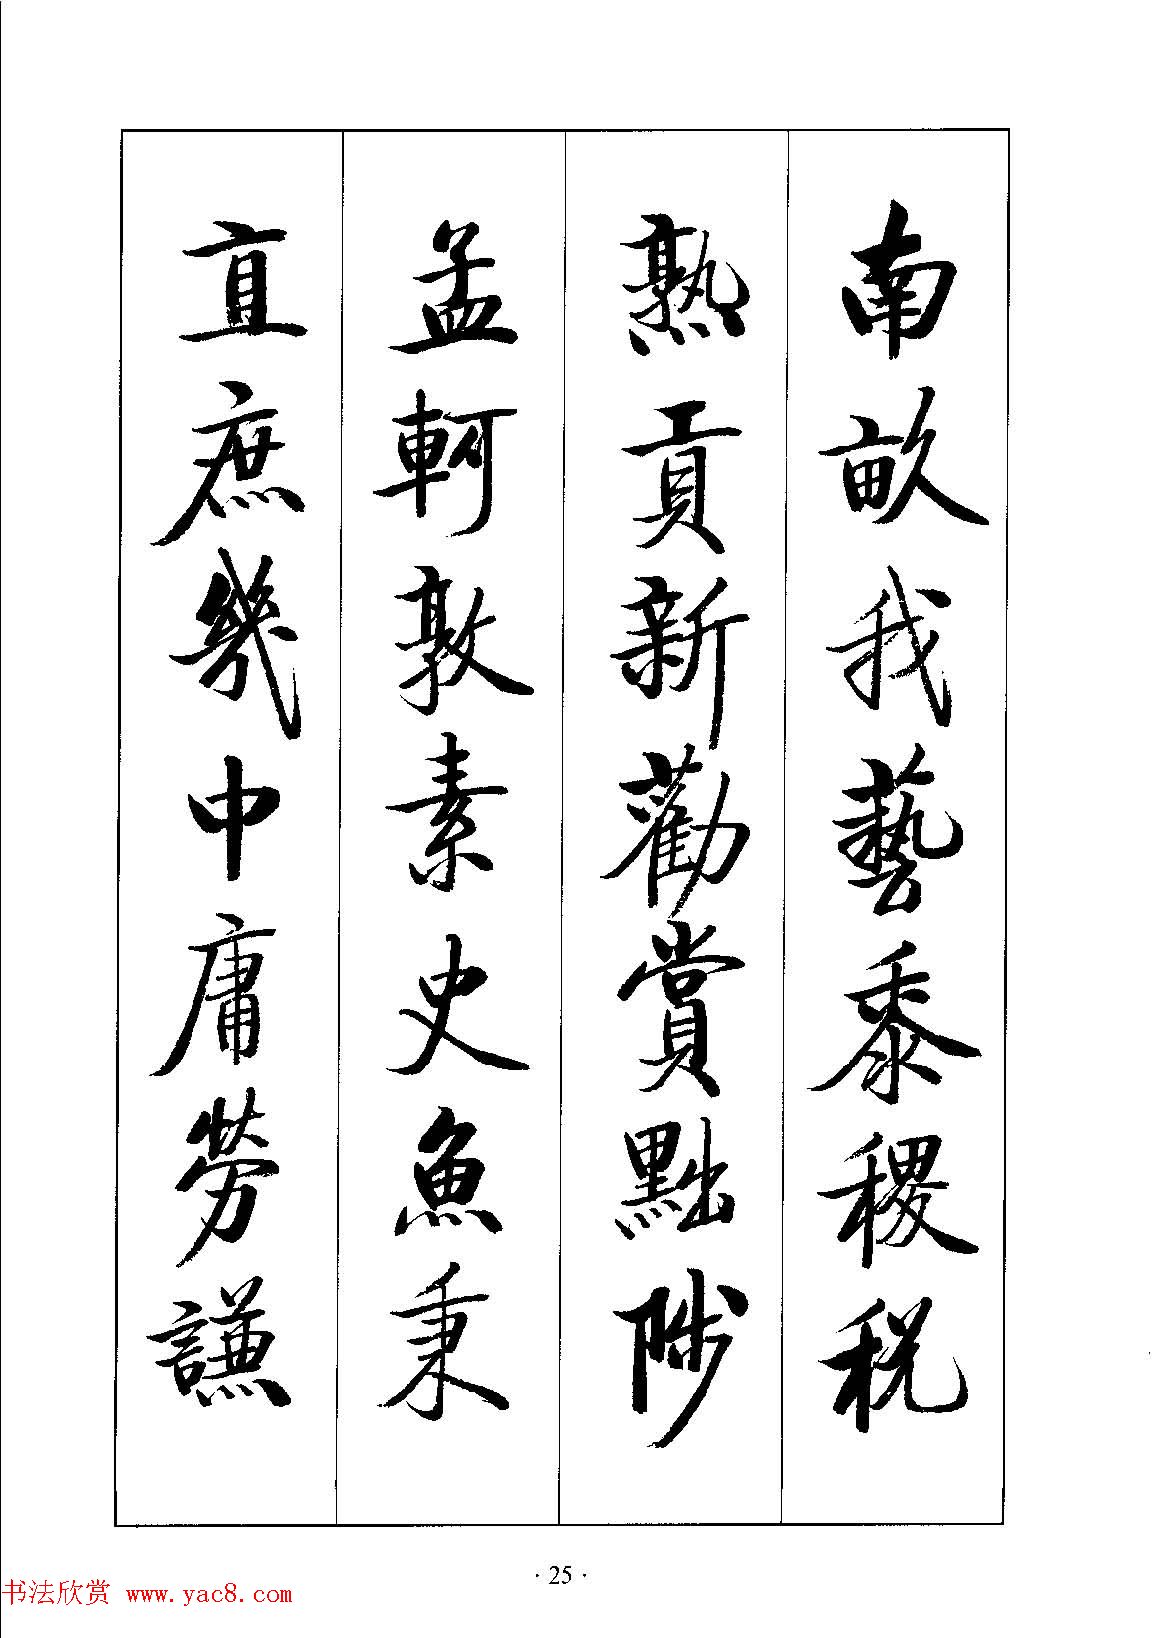 南畝我藝黍稷稅
熟貢新勸賞黜陟
孟軻敦素史魚秉
直庶幾中庸勞謙
· 25 ·
书法欣赏 www.yac8.com